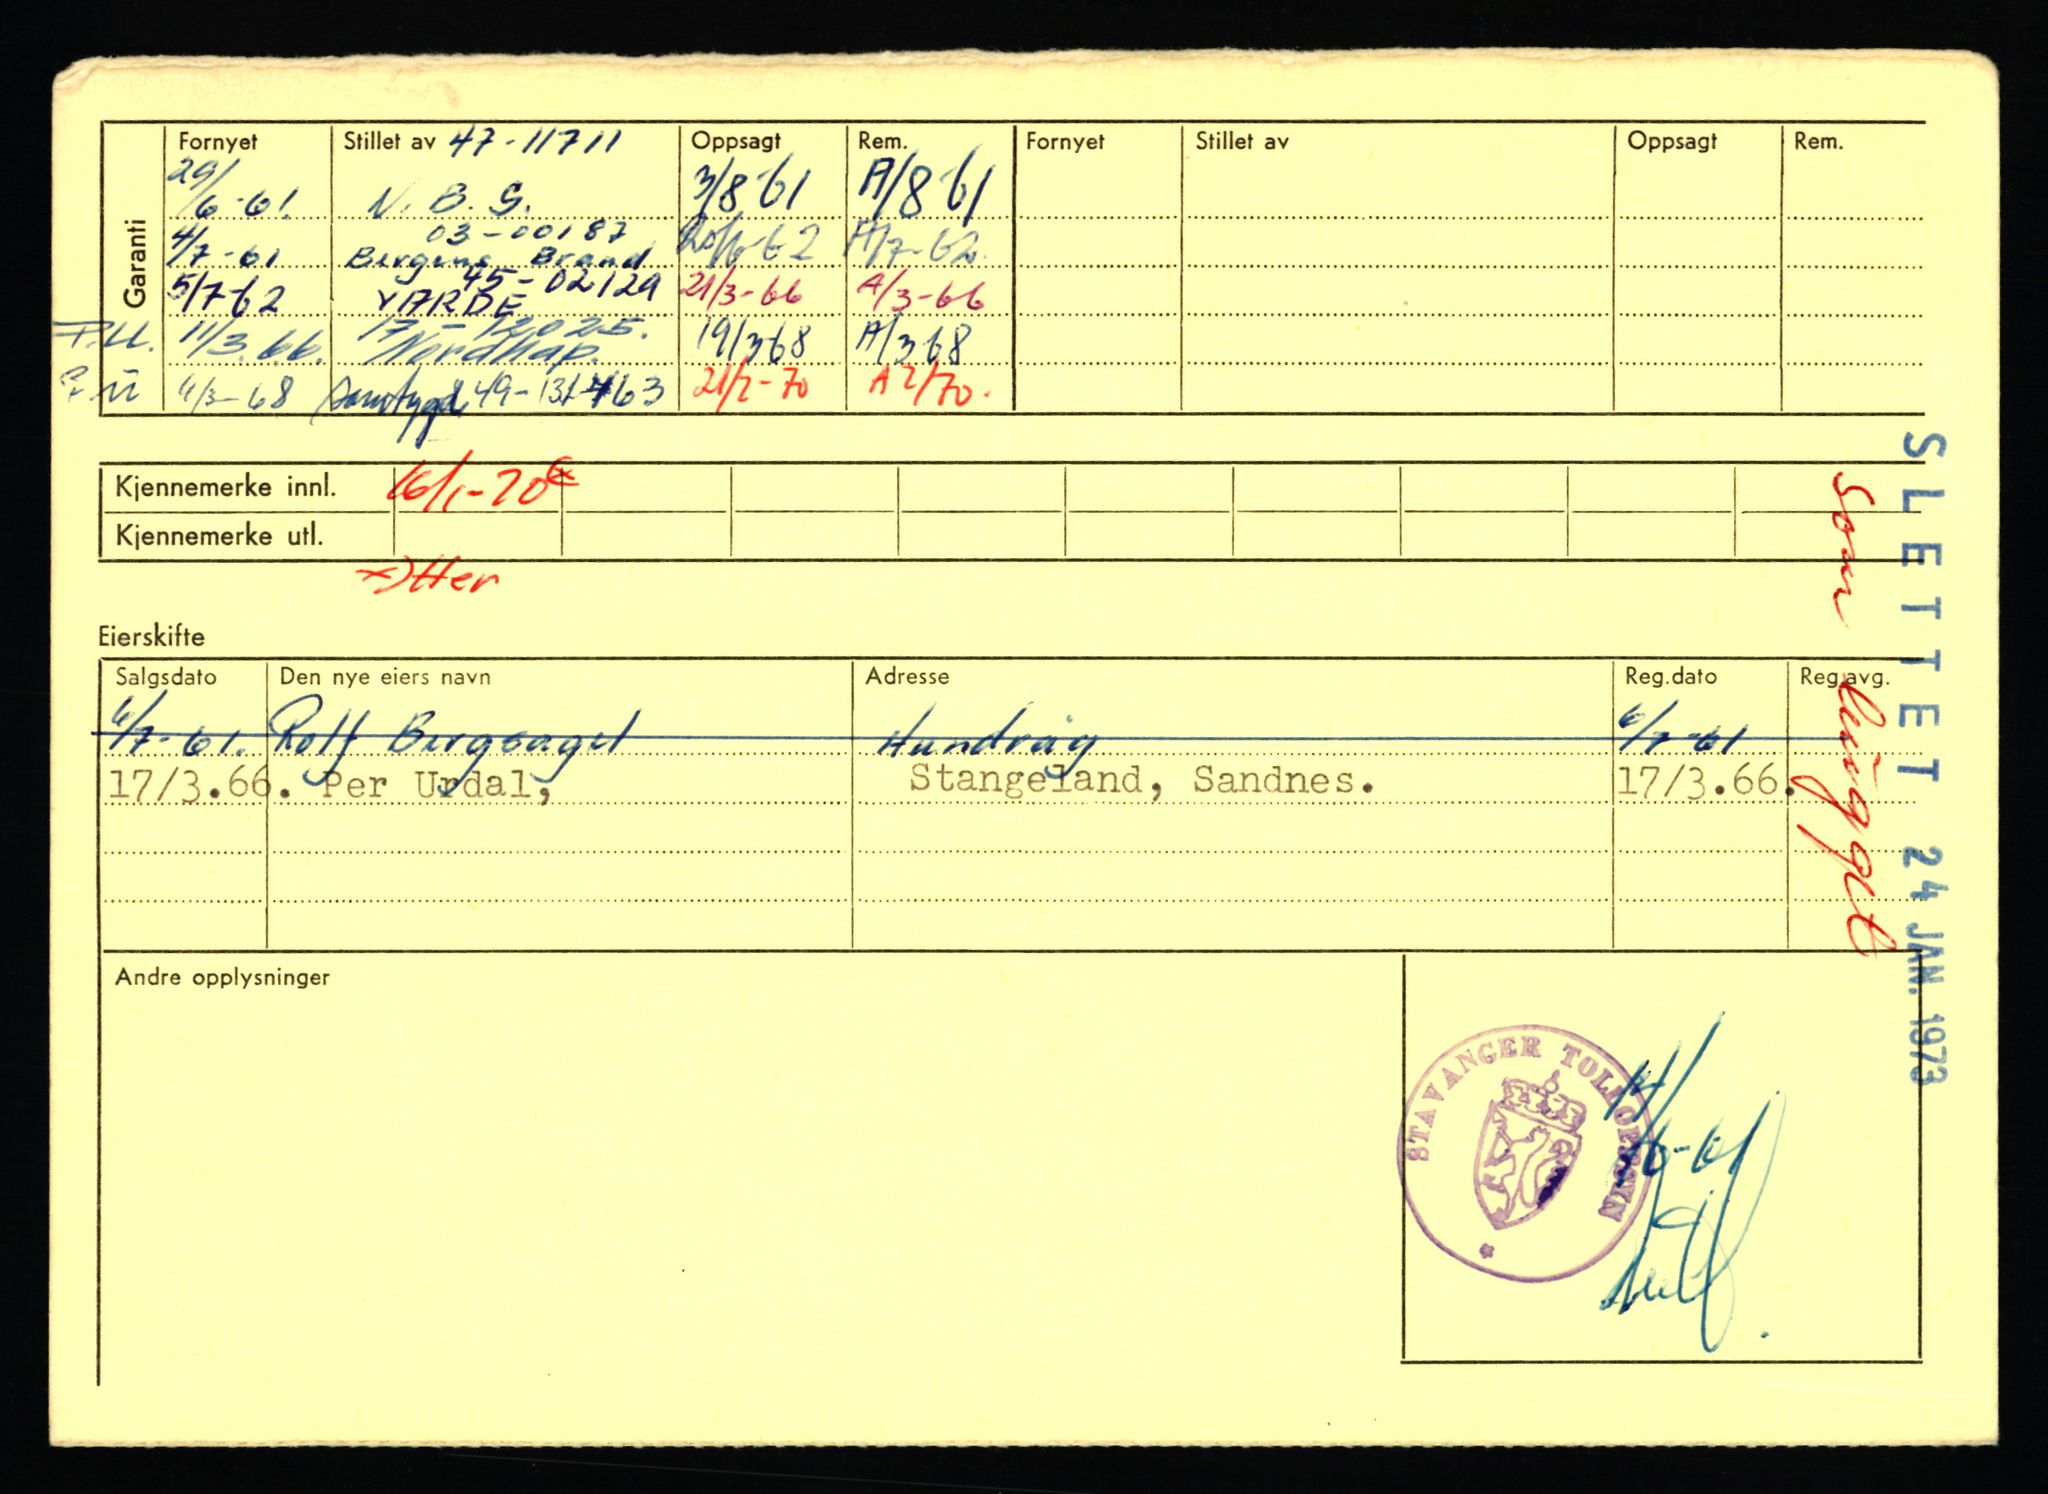 Garanti
Fornyet Stillet av 47-11711 Oppsagt Rem. Fornyet Stillet av Oppsagt Rem.
29/6-61. N.B.S. 3/8-61 A/8-61
03-00187
4/7-61 Bergens Brand 20/6-62 A/7-62.
45-02129
5/7-62 VARDE 21/3-66 A/3-66
17-12025.
P.U. 11/3.66. Nordhap. 19/3 68 A/3 68
P.U 4/3-68 Samtygd 49-131463 21/2-70 A 2/70.
Kjennemerke innl. 16/1-70
Kjennemerke utl.
Eierskifte
Salgsdato Den nye eiers navn Adresse Reg.dato Reg.avg.
6/7-61. Rolf Bergsagel Hundvåg 6/7-61
17/3.66. Per Urdal, Stangeland, Sandnes. 17/3.66.
Andre opplysninger
SLETTET 24 JAN. 1973
som hugget
STAVANGER TOLLOPPSYN